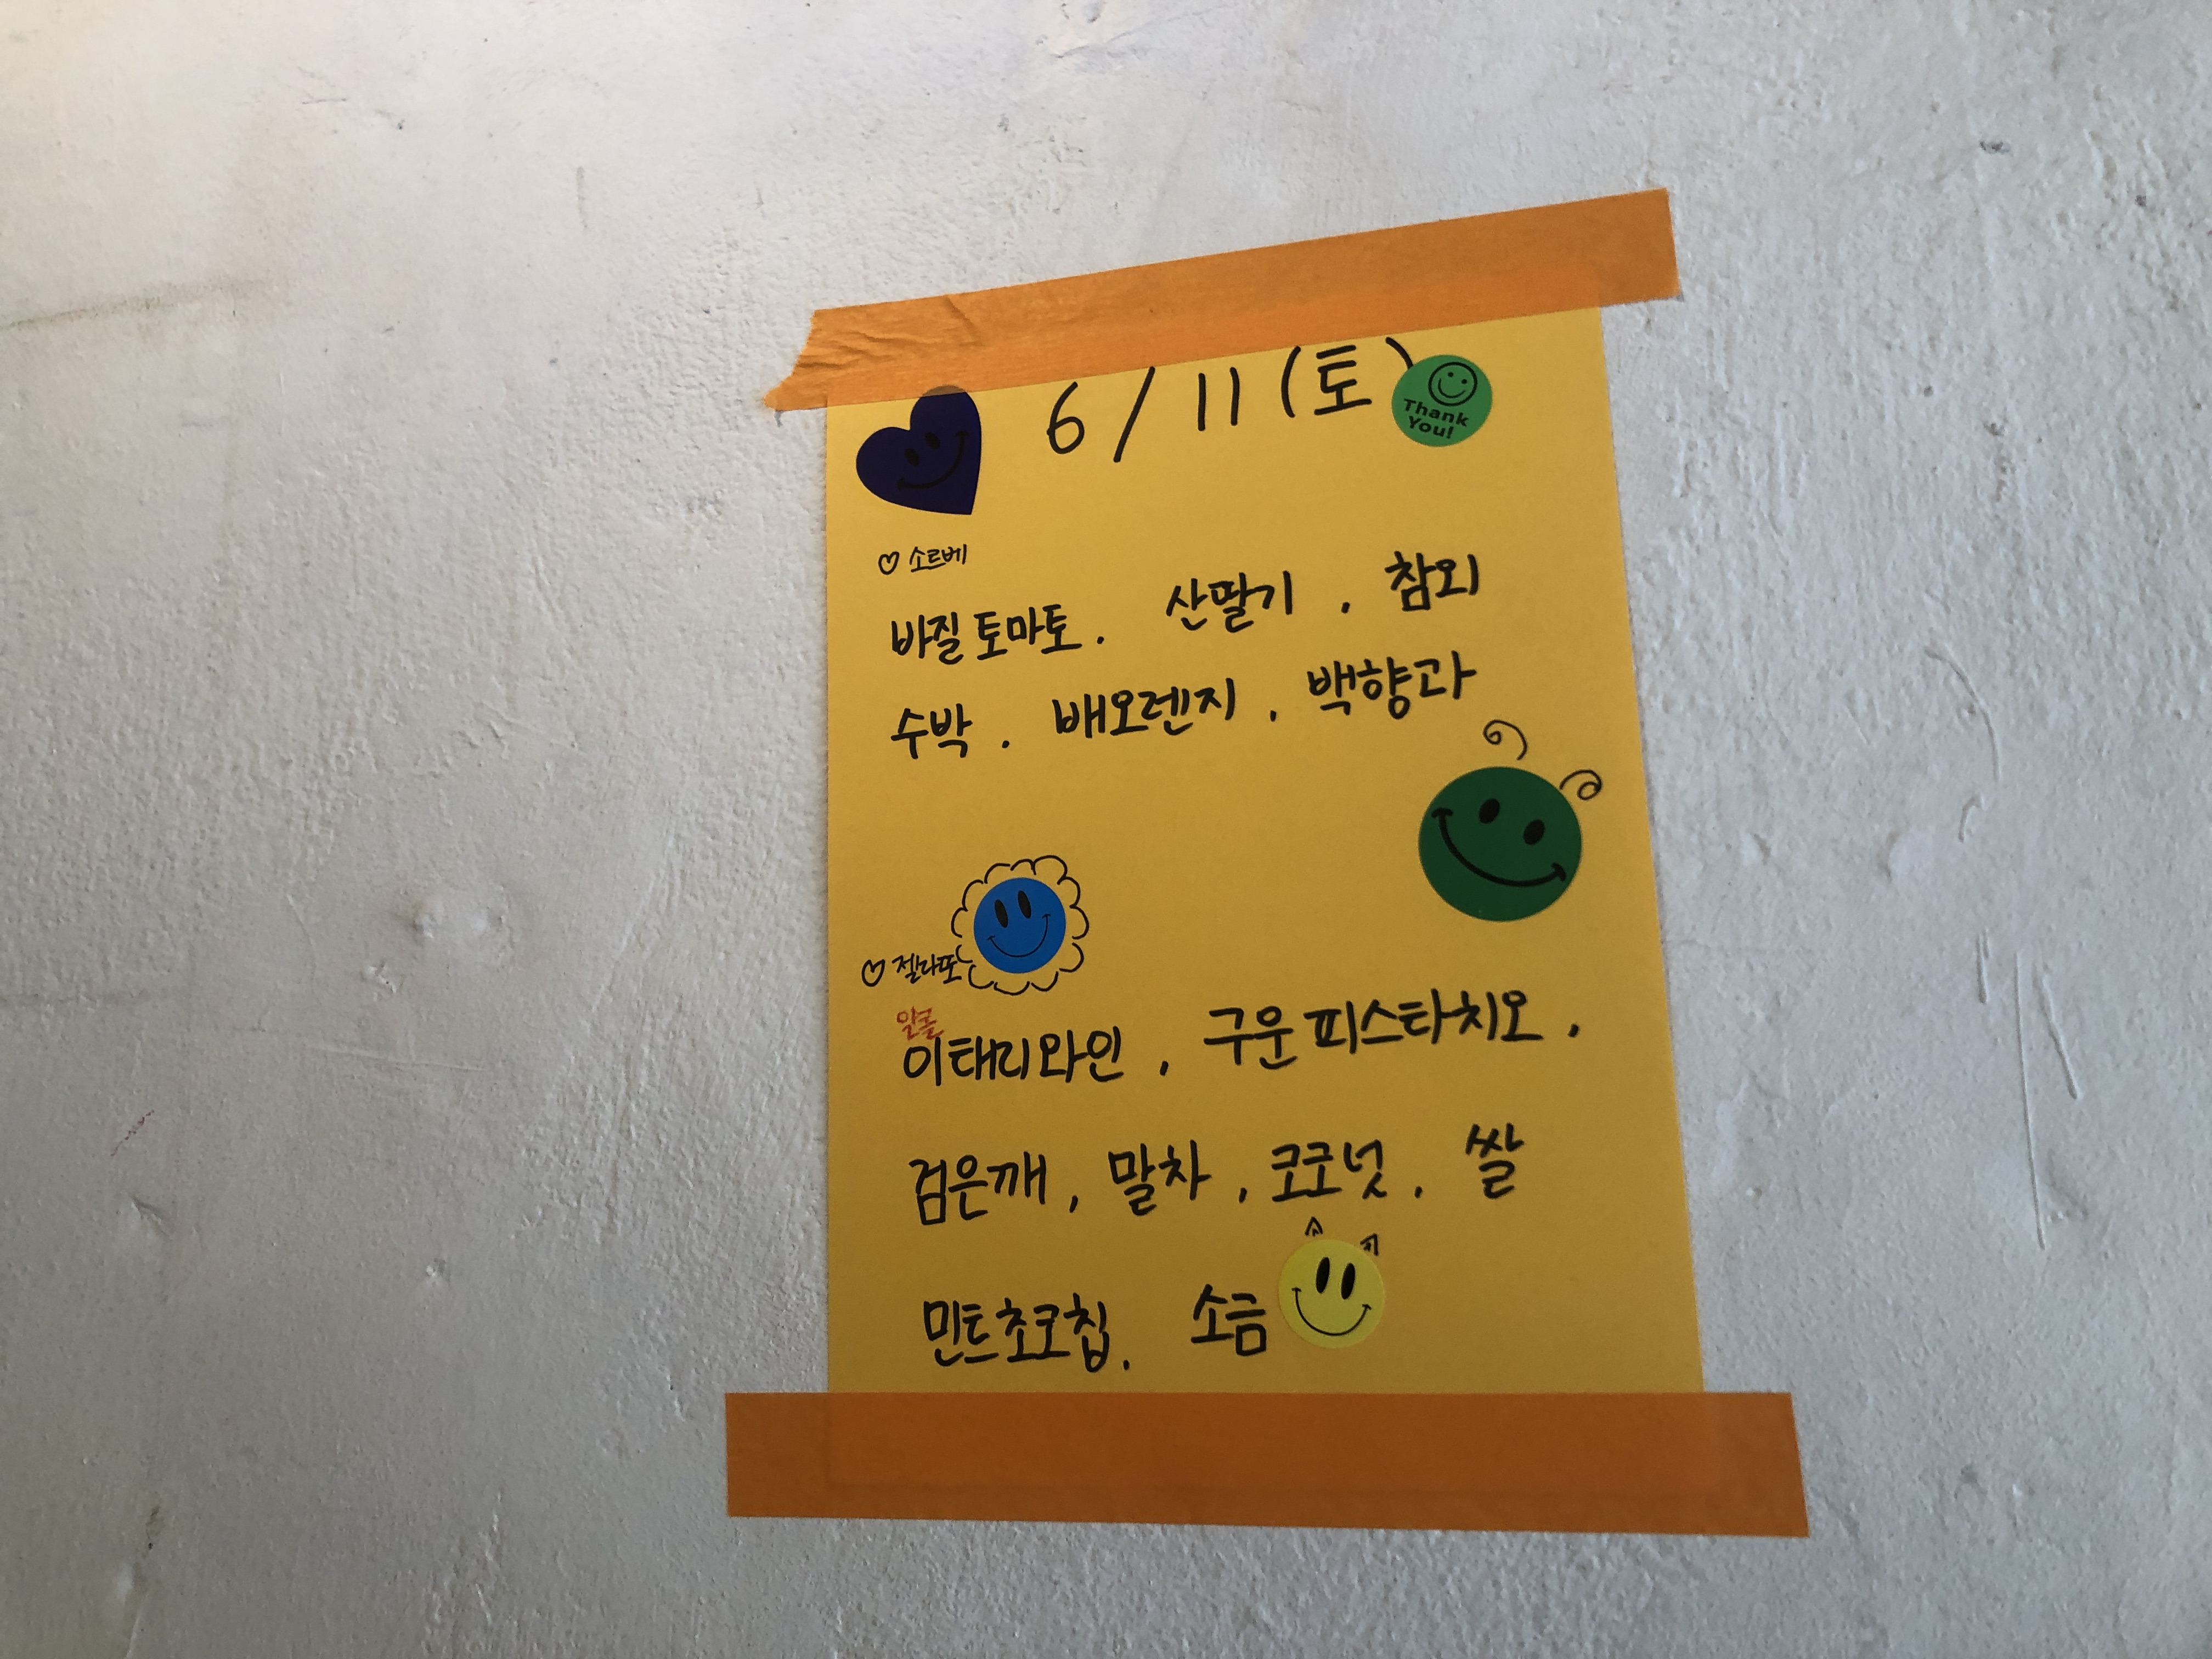 6/11 (토)
Thank
You!
♡ 소르베
바질토마토. 산딸기, 참외
수박. 배오렌지, 백향과
♡ 젤라또
알콜
이태리와인, 구운피스타치오,
검은깨, 말차, 코코넛, 쌀
민트초코칩. 소금